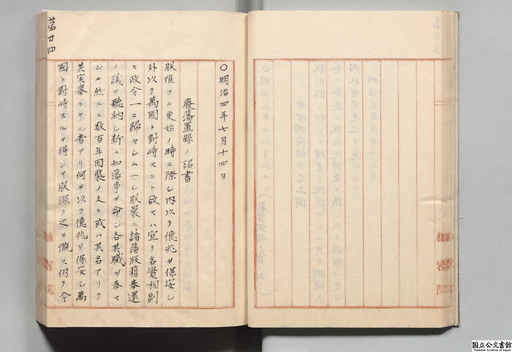 〇明治四年七月十四日
廃藩置縣ノ詔書
朕惟フニ更始ノ時ニ際シ内以テ億兆ヲ保安シ
外以テ萬國ト對峙セント欲セハ宜ク名實相副
ヒ政令一ニ歸セシムヘシ朕曩ニ諸藩版籍奉還
ノ議ヲ聽納シ新ニ知藩事ヲ命シ各其職ヲ奉セ
シム然ルニ数百年因襲ノ久キ或ハ其名アリテ
其実擧ラサル者アリ何ヲ以テ億兆ヲ保安シ萬
國ト對峙スルヲ得ンヤ朕深ク之ヲ慨ス仍テ今
国立公文書館
National Archives of Japan